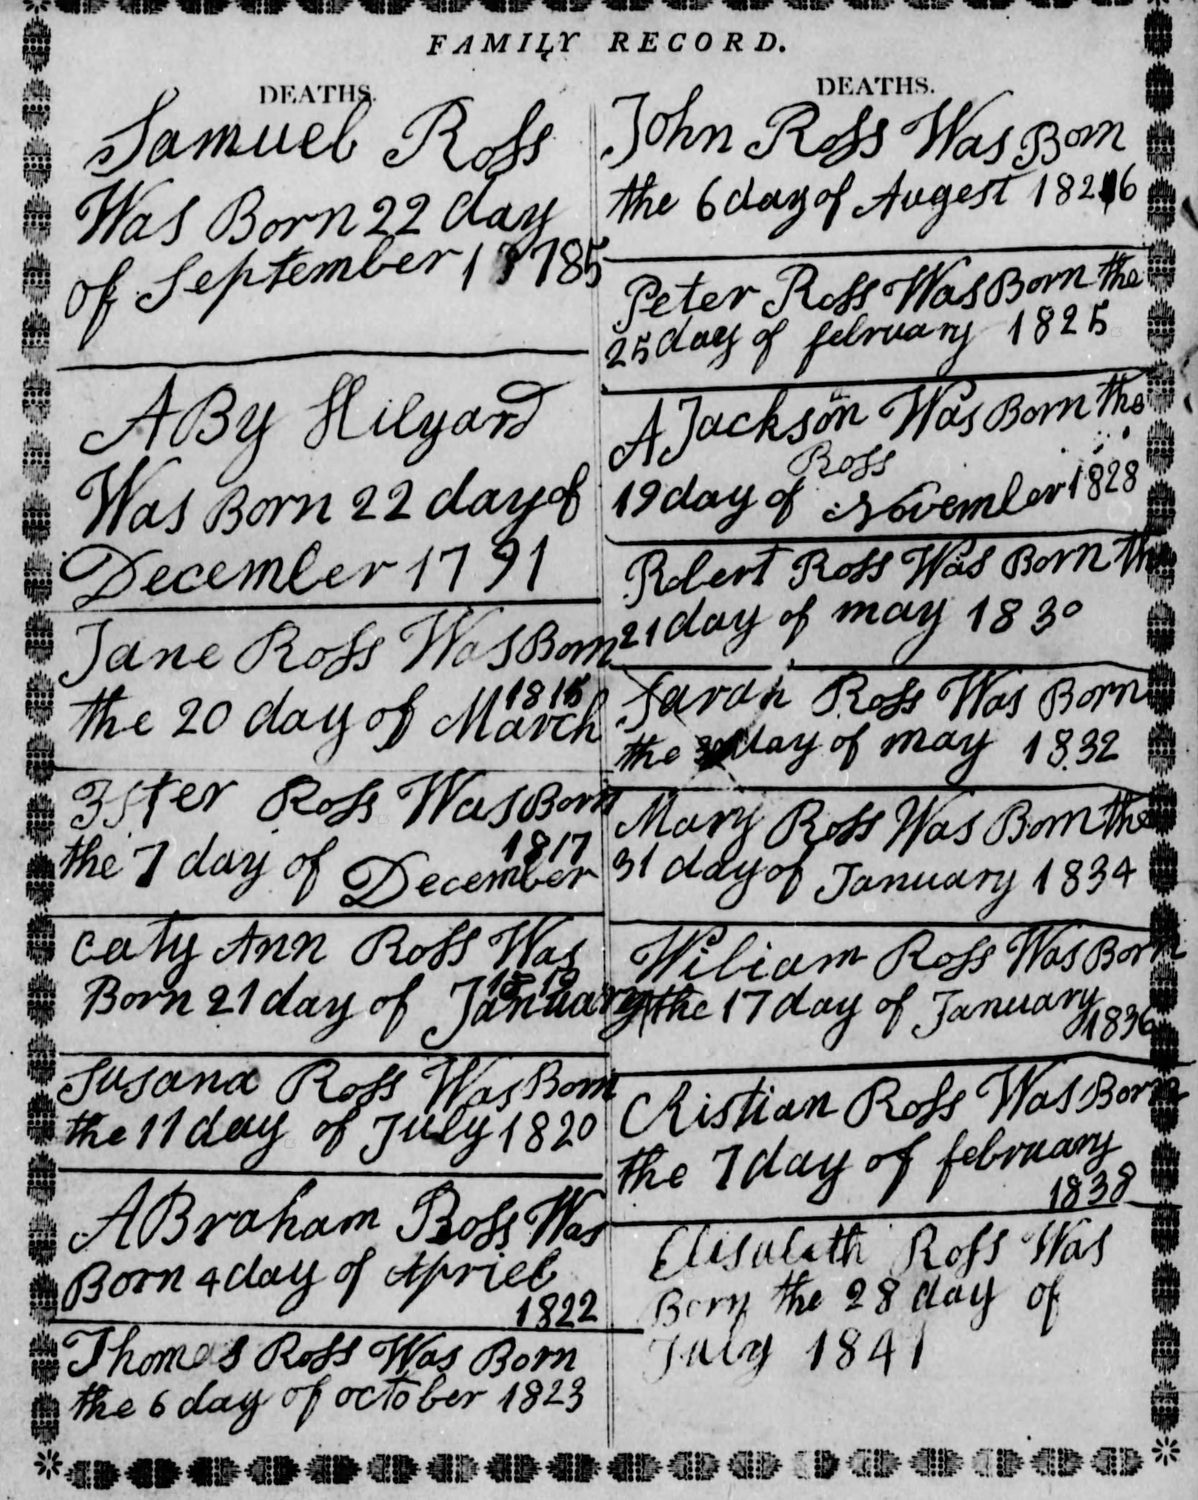 FAMILY RECORD.
DEATHS.
Samuel Ross
Was Born 22 day
of September 1785
ABy Hilyard
Was Born 22 day of
December 1791
Jane Ross Was Born
1815
the 20 day of March
Ester Ross Was Born
1817
the 7 day of December
Caty Ann Ross Was
1819
Born 21 day of January
Susana Ross Was Born
the 11 day of July 1820
ABraham Ross Was
Born 4 day of Apriel
1822
Thomas Ross Was Born
the 6 day of october 1823
DEATHS.
John Ross Was Born
the 6 day of Augest 1826
Peter Ross Was Born the
25 day of february 1825
A Jackson Was Born the
Ross
19 day of November 1828
Robert Ross Was Born the
21 day of may 1830
Sarah Ross Was Born
the day of may 1832
Mary Ross Was Born the
31 day of January 1834
Wiliam Ross Was Born
the 17 day of January
1836
Cristian Ross Was Born
the 7 day of february
1838
Elisabath Ross Was
Born the 28 day of
July 1841